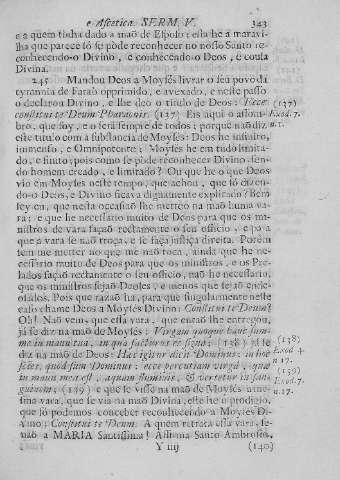 e Ascetica. SERM. V. 343
e a quem tinha dado a maõ de Esposo: esta he a maravi-
lha que parece só se póde reconhecer no nosso Santo re-
conhecendo-o Divino, e conhecendo-o Deos, e cousa
Divina.
245 Mandou Deos a Moysés livrar o seu povo da
tyrannia de Faraò opprimido, e avexado, e neste passo
o declarou Divino, e lhe deo o titulo de Deos: Ecce
constitui te Deum Pharaonis. (137) Eis aqui o assom-
bro, que foy, e o será sempre de todos; porque naõ diz
este titulo com a substancia de Moysés: Deos he infinito,
immenso, e Omnipotente; Moysés he em tudo limita-
do, e finito; pois como se póde reconhecer Divino, sen-
do homem creado, e limitado? Ou que he o que Deos
vio em Moysés neste tempo, que achou, que só dizen-
do-o Deos, e Divino ficava dignamente explicado? Bem
sey eu, que nesta occasiaõ lhe metteo na maõ huma va-
ra; e que he necessario muito de Deos para que os mi-
nistros de vara façaõ rectamente o seu officio, e para
que a vara se naõ troça, e se faça justiça direita. Porém
sem me metter no que me naõ toca, ainda que he ne-
cessario muito de Deos para que os ministros, e os Pre-
lados façaõ rectamente o seu officio, naõ he necessario,
que os ministros sejaõ Deoses, e menos que sejaõ ende-
osados. Pois que razaõ ha, para que singularmente neste
caso chame Deos a Moysés Divino: Constitui te Deum?
Oh! Naõ vem, que essa vara, que entaõ lhe entregou,
já se diz na maõ de Moysés: Virgam quoque hanc sume
in manu tua, in qua facturus es signa; (138) já se
diz na maõ de Deos: Hæc igitur dicit Dominus: in hoc
scies, quod sum Dominus: ecce percutiam virgâ, quæ
in manu mea est, aquam fluminis, & vertetur in san-
guinem; (139) e que se visse na maõ de Moysés a mes-
ma vara, que se via na maõ Divina, esse he o prodigio,
que só podemos conceber reconhecendo a Moysés Di-
vino: Constitui te Deum. A quem retrata essa vara, se-
naõ a MARIA Santissima! Affirma Santo Ambrosio,
Y iiij (140)
(137)
Exod. 7.
n. 1.
(138)
Exod. 4.
n. 17.
(139)
Exod. 7.
n. 17.